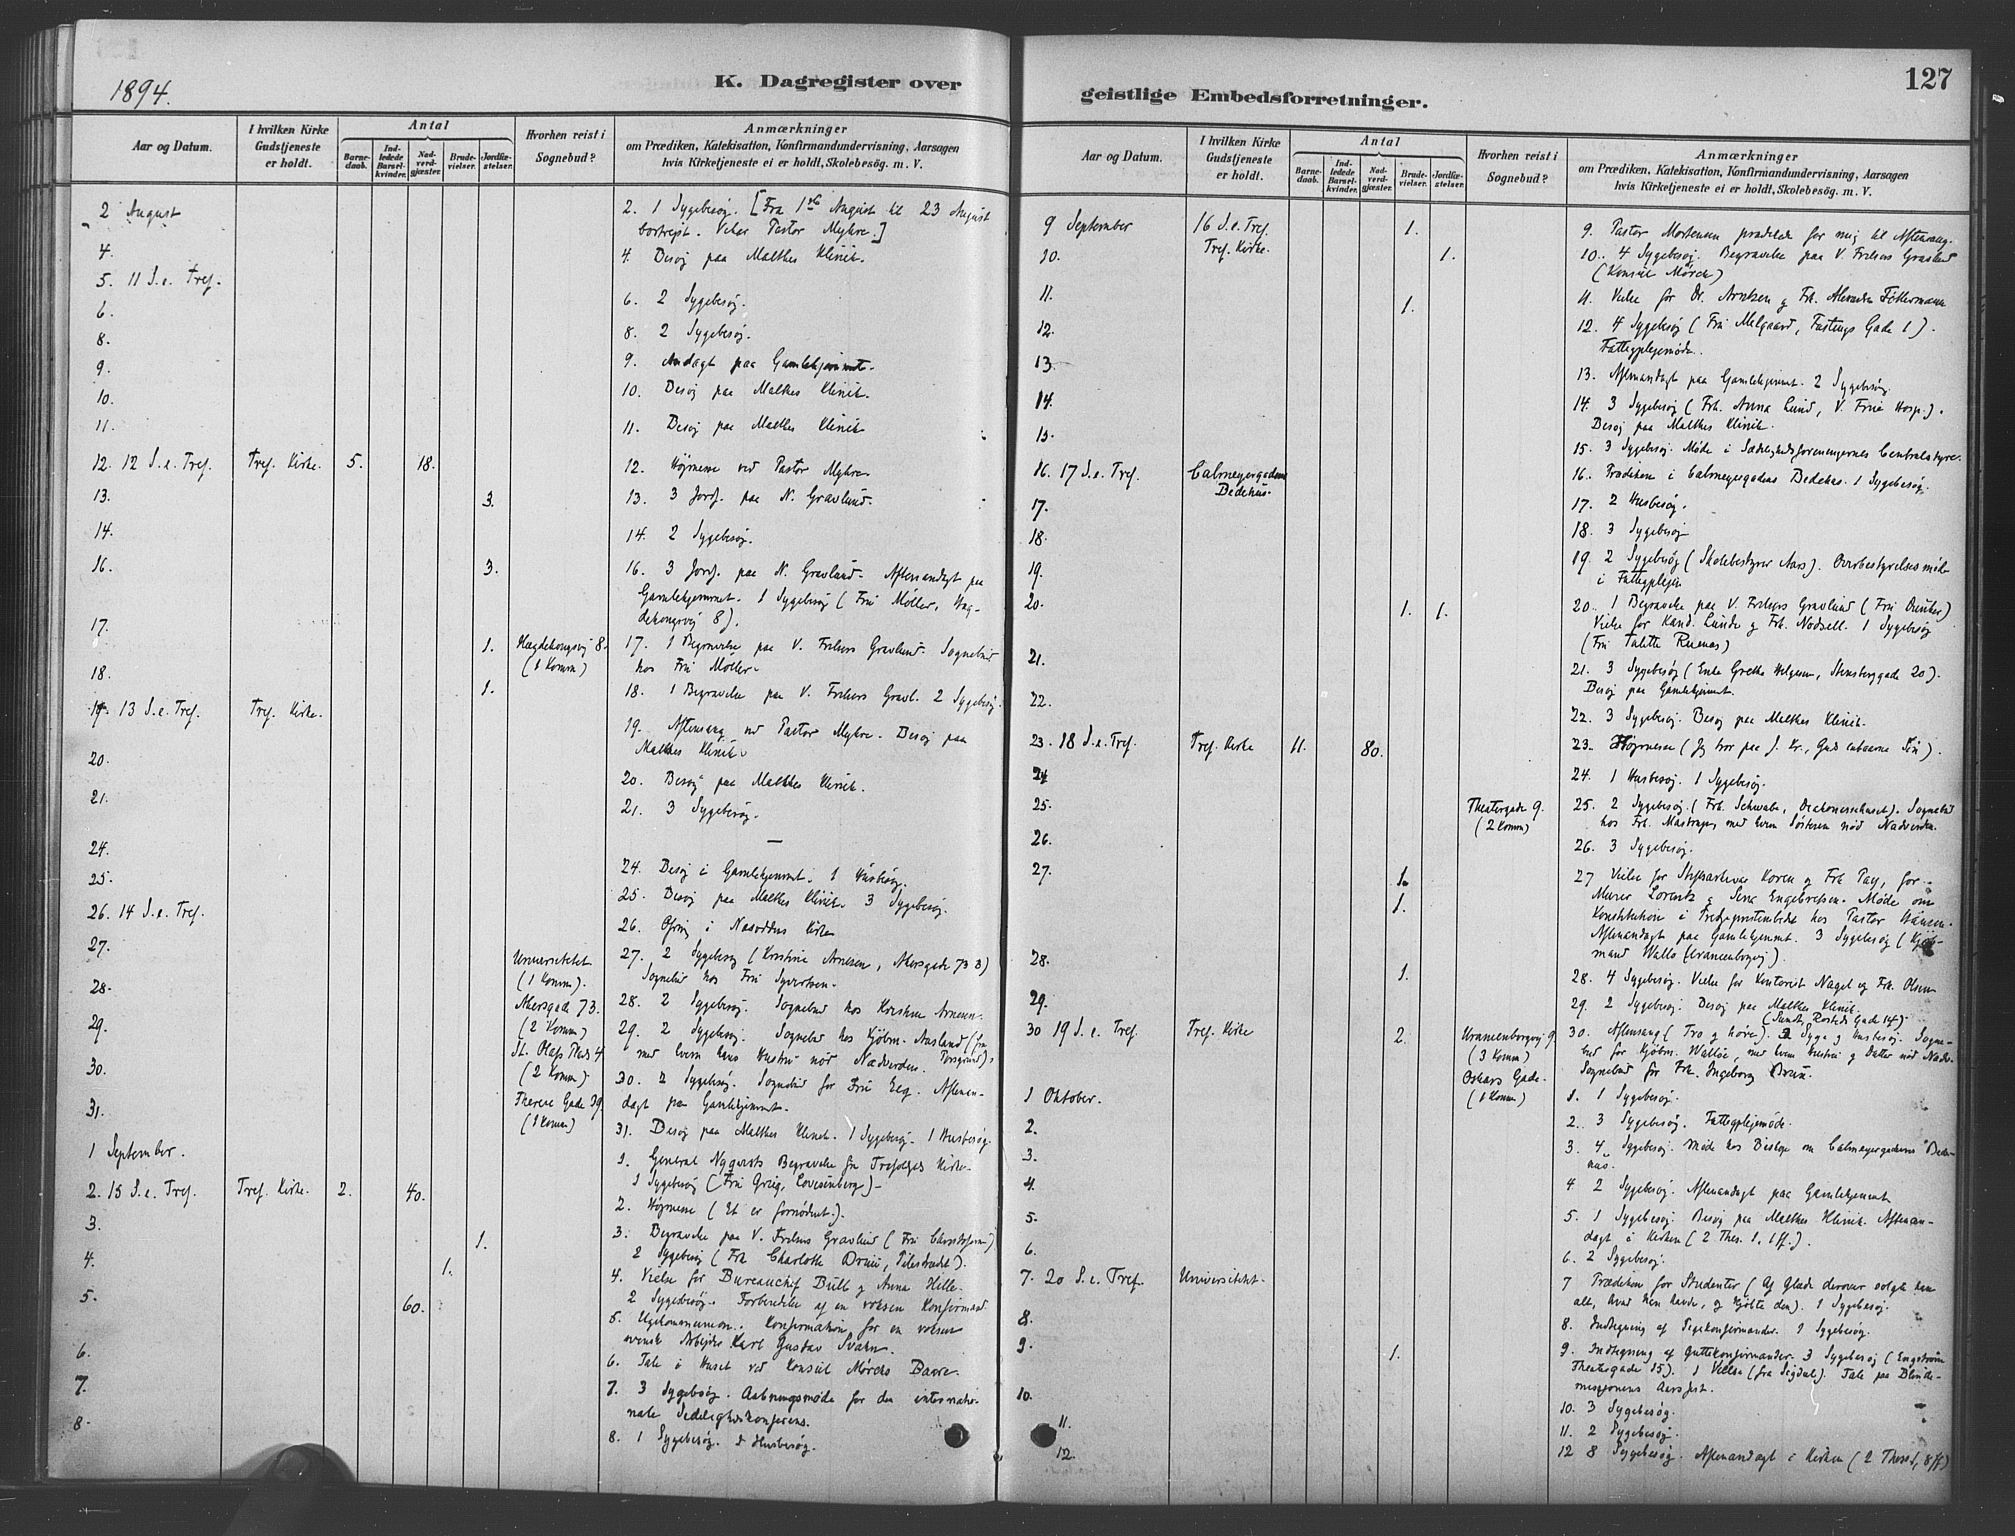 1894.
K. Dagregister over
Aar og Datum.
I hvilken Kirke Gudstjeneste er holdt.
Antal
Barnedaab.
Indledede Barselkvinder.
Nadverdgjæster.
Brudevielser.
Jordfæstelser.
Hvorhen reist i Sognebud?
Anmærkninger
om Prædiken, Katekisation, Konfirmandundervisning, Aarsagen
hvis Kirketjeneste ei er holdt, Skolebesög. m. V.
2 August
2. 1 Sygebesøg. [Fra 1ste August til 23 August
bortrejst. Vikar Pastor Myhre.]
4.
4. Besøg paa Malthes Klinik.
5. 11 S. e. Tref.
6.
6. 2 Sygebesøg.
8.
8. 2 Sygebesøg.
9.
9. Andagt paa Gamlehjemmet.
10.
10. Besøg paa Malthes Klinik.
11.
11. Besøg paa Malthes Klinik
12. 12 S. e. Tref. Tref. Kirke. 5. 18.
12. Højmesse ved Pastor Myhre
13. 3.
13. 3 Jordf. paa N. Gravlund.
14.
14. 2 Sygebesøg.
16. 3.
16. 3 Jordf. paa N. Gravlund. Aftenandagt paa
Gamlehjemmet. 1 Sygebesøg (Fru Møller, Hæg-
dehougsvej 8).
17. 1. Hægdehougsvej 8.
(1 Komm)
17. 1 Begravelse paa V. Frelsers Gravlund. Sognebud
hos Fru Møller.
18. 1.
18. 1 Begravelse paa V. Frelsers Gravl. 2 Sygebesøg.
19. 13 S. e. Tref. Tref. Kirke.
19. Aftensang ved Pastor Myhre. Besøg paa
Malthes Klinik.
20.
20. Besøg paa Malthes Klinik.
21.
21. 3 Sygebesøg.
24.
24. Besøg i Gamlehjemmet. 1 Husbesøg.
25.
25. Besøg paa Malthes Klinik. 3 Sygebesøg.
26. 14 S. e. Tref.
26. i Næsoddens Kirke
27. Universitetet
(1 Komm).
27. 2 Sygebesøg (Kristine Arnesen, Akersgade 73 B)
Sognebud hos Fru Syvertsen.
28. Akersgade 73.
(2 Komm)
28. 2 Sygebesøg. Sognebud hos Kristine Arnesen.
29. St. Olafs Plads 4
(2 Komm)
29. 2 Sygebesøg. Sognebud hos Kjøbm. Aasland (fra Porsgrund),
med hvem hans Hustru nød Nadverden.
30. Therese Gade 39
(1 Komm)
30. 2 Sygebesøg. Sognebud for Fru Eeg. Aftenan-
dagt paa Gamlehjemmet.
31.
31. Besøg paa Malthes Klinik. 1 Sygebesøg. 1 Husbesøg.
1 September.
1. General Begravelse fra Trefoldigheds Kirke.
1 Sygebesøg (Fru Grieg, Lovisenberg).
2. 15 S. e. Tref. Tref. Kirke. 2. 40.
2. Højmesse (Et er fornødent.).
3. 1.
3. Begravelse paa V. Frelsers Gravlund (Fru Christophersen)
2 Sygebesøg (Frk Charlotte Bruu, Pilestrædet).
4. 1.
4. Vielse for Bureauchef Bull og Anna Helle.
2 Sygebesøg. Forberedelse af en voksen Konfirmand.
5. 60.
5. Ugekommunion. Konfirmation for en voksen
svensk Arbejder Karl Gustav Svahn.
6.
6. Tale i Huset ved Konsul Mørchs Baare.
7.
7. 3 Sygebesøg. Aabningsmøde for den internatio-
nale Sedelighedskonferens.
8.
8. 1 Sygebesøg. 1 Husbesøg.
geistlige Embedsforretninger.
127
Aar og Datum.
I hvilken Kirke Gudstjeneste er holdt.
Antal
Barnedaab.
Indledede Barselkvinder.
Nadverdgjæster.
Brudevielser.
Jordfæstelser.
Hvorhen reist i Sognebud?
Anmærkninger
om Prædiken, Katekisation, Konfirmandundervisning, Aarsagen
hvis Kirketjeneste ei er holdt, Skolebesög. m. V.
9 September 16 S. e. Tref.
Tref. Kirke. 1.
9. Pastor Mortensen prædikede for mig til Aftensang.
10. 1.
10. 4 Sygebesøg. Begravelse paa V. Frelsers Gravlund
(Konsul Mørch)
11. 1.
11. Vielse for Dr. Arntzen og Frk.
12.
12. 4 Sygebesøg (Fru Melgaard, Fastings Gade 1).
Fattigplejemøde.
13.
13. Aftenandagt paa Gamlehjemmet. 2 Sygebesøg.
14.
14. 3 Sygebesøg (Frk. Anna Lund, V. Frue Hosp.).
Besøg paa Malthes Klinik.
15.
15. 3 Sygebesøg. Møde i Sædelighedsforeningernes Centralstyre.
16. 17 S. e. Tref. Calmeyergadens
Bedehus.
16. Prædiken i Calmeyergadens Bedehus. 1 Sygebesøg.
17.
17. 2 Husbesøg.
18.
18. 3 Sygebesøg
19.
19. 2 Sygebesøg (Skolebestyrer Aars). Overbestyrelsesmøde
i Fattigplejen
20. 1. 1.
20. 1 Begravelse paa V. Frelsers Gravlund (Fru Dunker)
Vielse for Kand. Lunde og Frk. Nodsell. 1 Sygebesøg
(Fru)
21.
21. 3 Sygebesøg (Enke Grethe Helgesen, Stensberggade 20).
Besøg paa Gamlehjemmet.
22.
22. 3 Sygebesøg. Besøg paa Malthes Klinik.
23. 18 S. e. Tref. Tref. Kirke 11. 80.
23. Højmesse (Jeg tror paa J. Kr., Guds enbaarne Søn).
24.
24. 1 Husbesøg. 1 Sygebesøg.
25. Theatergade 9.
(2 Komm)
25. 2 Sygebesøg (Frk. Schwabe, Diakonissehuset). Sognebud
hos Frk. med hvem Søsteren nød Nadverden.
26.
26. 3 Sygebesøg.
27. 1.
1.
27 Vielse for Koren og Frk Pay, for
Murer Lorentz og Engebretsen. Møde om
Konstitution i hos Pastor Hansen.
Aftenandagt paa Gamlehjemmet. 3 Sygebesøg (Kjøb-
mand Uranienborgvej).
28. 1.
28. 4 Sygebesøg. Vielse for Kontorist Nagel og Frk. Olsen
29.
29. 2 Sygebesøg. Besøg paa Malthes Klinik.
30 19 S. e. Tref. Tref. Kirke 2. Uranienborgvej 9
(3 Komm)
Oskars Gade.
(1 Komm)
(Sundt, Rosteds Gade 14).
30. Aftensang (Tro og høre). 2 Syge og Husbesøg. Sogne-
bud for Kjøbm. med hvem Hustru og Datter nød Nadv.
Sognebud for Frk. Ingeborg Bruu.
1 Oktober.
1. 1 Sygebesøg.
2.
2. 3 Sygebesøg. Fattigplejemøde.
3.
3. 4 Sygebesøg. Møde hos Biskop om Calmeyergadens Bede-
hus.
4.
4 2 Sygebesøg. Aftenandagt paa Gamlehjemmet
5.
5. 1 Sygebesøg. Besøg paa Malthes Klinik. Aftenan-
dagt i Kirken (2 Thes. 1, 1ff.).
6.
6. 2 Sygebesøg.
7. 20 S. e. Tref. Universitetet.
7 Prædiken for Studenter (Af Glæde derover solgte han
alt, hvad han havde, og kjøbte den). 1 Sygebesøg.
8.
8. Indtegning af Pigekonfirmander. 1 Sygebesøg.
9. 1.
9. Indtegning af Guttekonfirmander. 3 Sygebesøg (Engstrøm
Theatergade 15). 1 Vielse (fra Sigdal). Tale paa Blinde-
missionens Aarsfest.
10.
10. 3 Sygebesøg.
11.
11. 2 Sygebesøg.
12
12 8 Sygebesøg. Aftenandagt i Kirken (2 Thess 1, 8 ff)